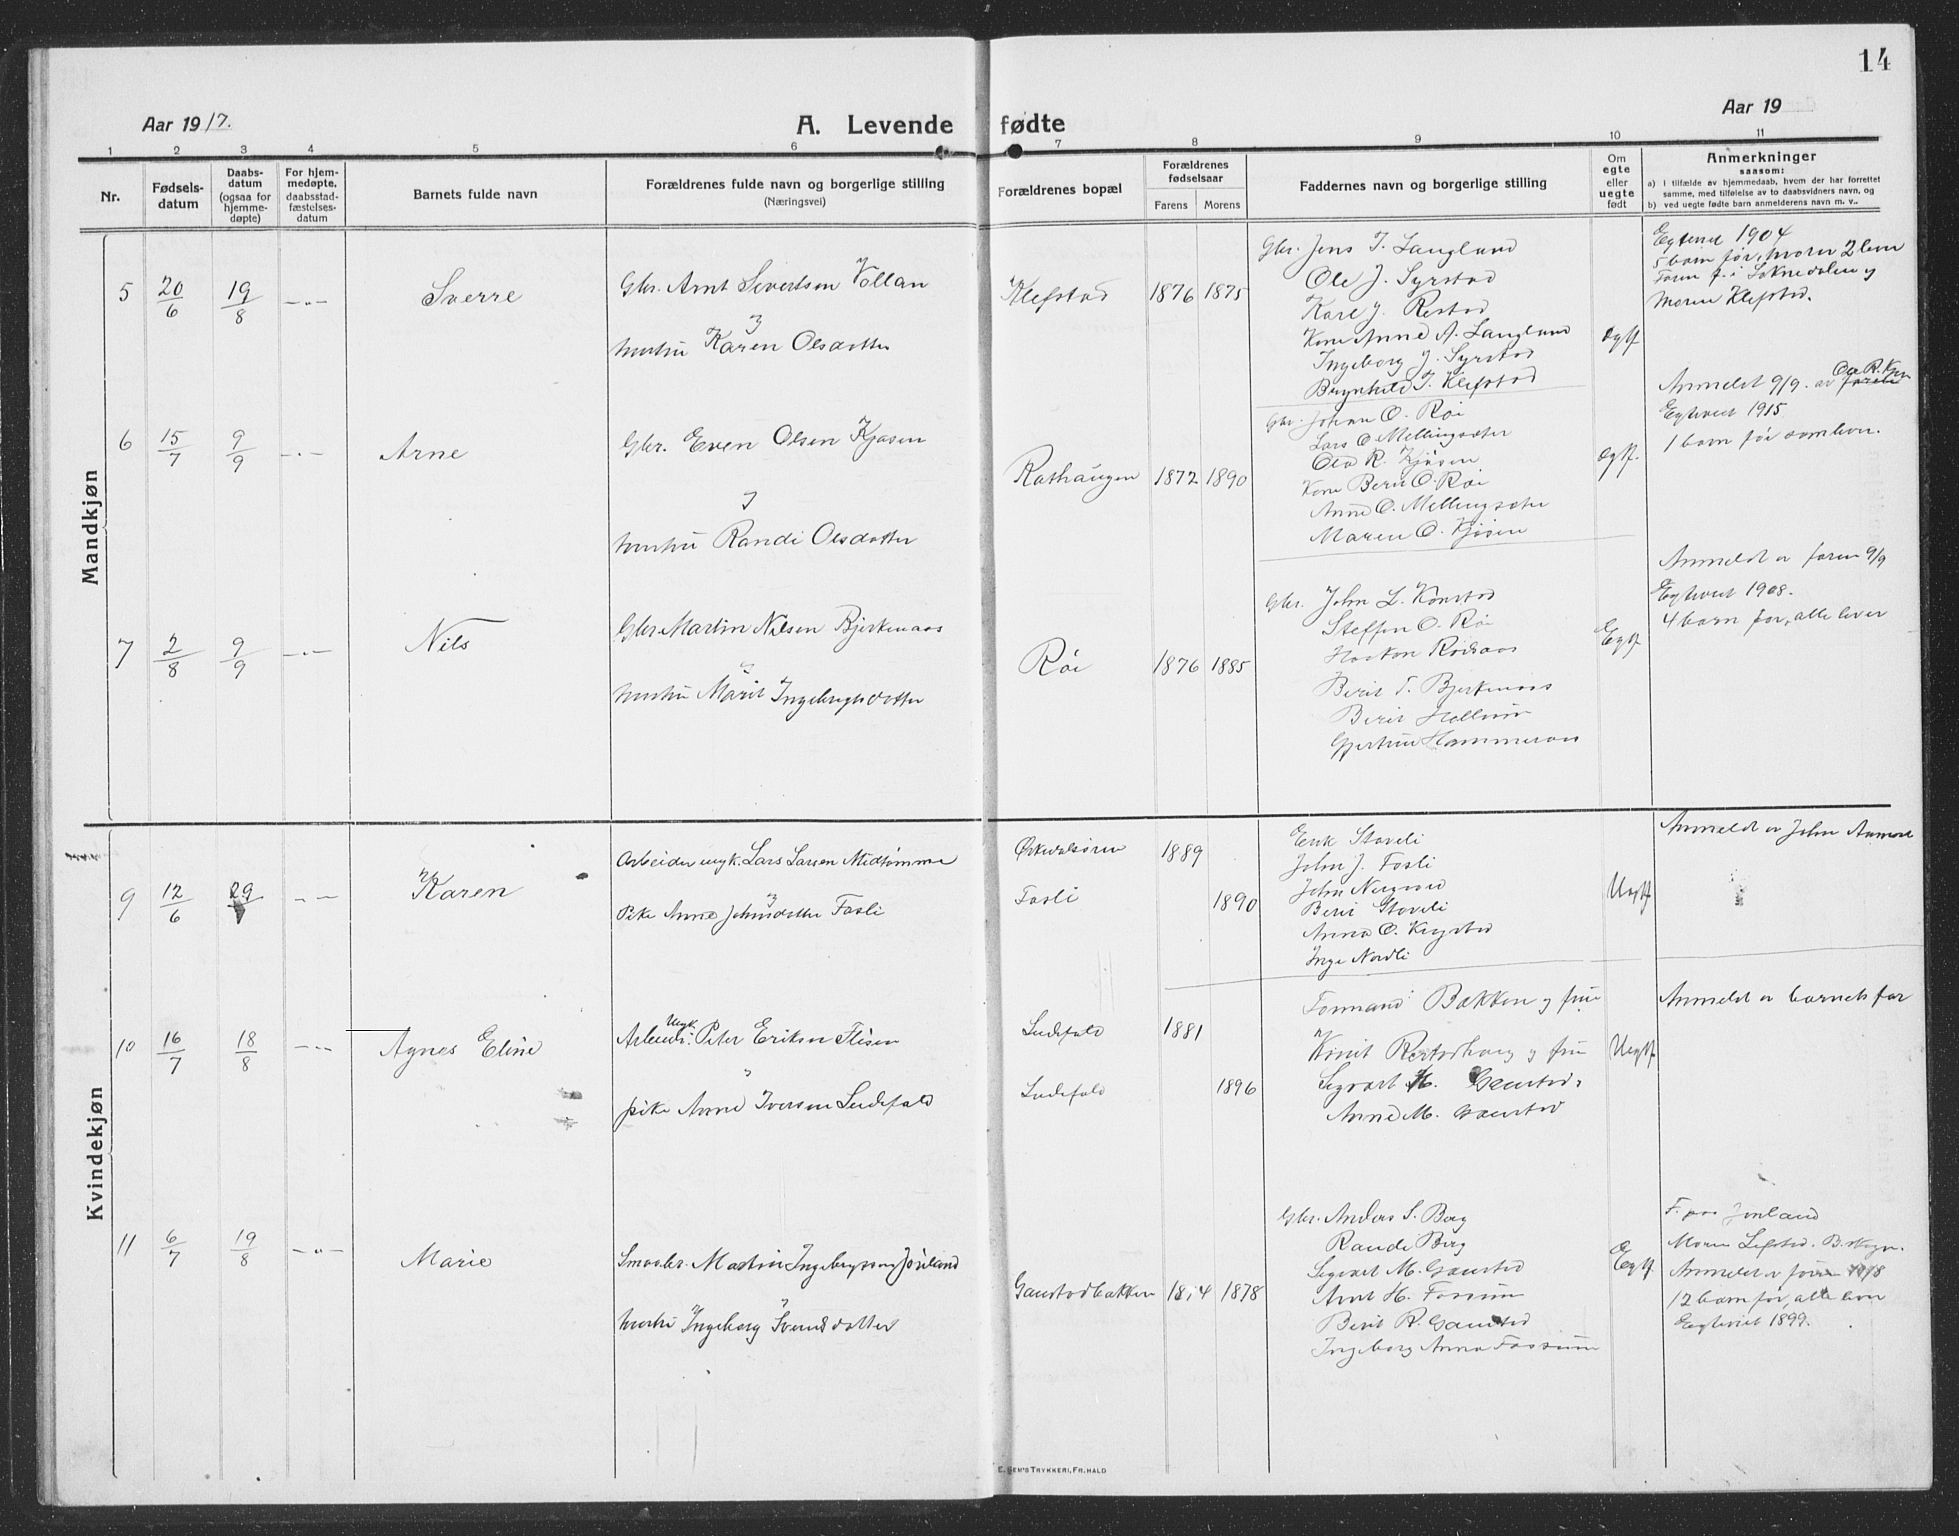 14
Aar 1917.
A. Levende fødte
Aar 19
1 2 3 4 5 6 7 8 9 10 11
Nr.
Fødsels-
datum
Daabs-
datum
(ogsaa for
hjemme-
døpte)
For hjem-
medøpte,
daabsstad-
fæstelses-
datum
Barnets fulde navn
Forældrenes fulde navn og borgerlige stilling
(Næringsvei)
Forældrenes bopæl
Forældrenes
fødselsaar
Farens Morens
Faddernes navn og borgerlige stilling
Om
egte
eller
uegte
født
Anmerkninger
saasom:
a) I tilfælde av hjemmedaab, hvem der har forrettet
samme, med tilføielse av to daabsvidners navn, og
b) ved uegte fødte barn anmelderens navn m. v..
Mandkjøn
5 20/6 19/8 -"- Sverre
Gbr. Arnt Sivertsen Vollan
og
hustru Karen Olsdatter
Klefstad 1876 1875
Gbr. Jens T. Langland
Ole J. Syrstad
Karl J. Restad
Kone Anne A. Langland
Ingeborg J. Syrstad
Brynhild T. Klefstad
ægtf.
Egteviet 1904
5 barn før, hvorav 2 lever
Faren f. i Soknedalen og
Moren Klefstad.
6 15/7 9/9 -"- Arne
Gbr. Even Olsen Kjøsen
og
hustru Randi Olsdatter
Rathaugen 1872 1890
Gbr. Johan O. Røi
Lars O. Mellingsæter
Ola R. Kjøsen
Kone Berit O. Røi
Anne O. Mellingsæter
Maren O. Kjøsen
ægtf.
Anmeldt 9/9. av Ole R.
Egteviet 1915
1 barn før som lever.
7 2/8 9/9 -"- Nils
Gbr. Martin Nilsen Bjerkenaas
og
hustru Marit Ingebrigtsdatter
Røi 1876 1885
Gbr. John L. Konstad
Steffen O. Røi
Haakon Rødsaas
Berit T. Bjerkenaas
Berit Hallum
Gjertrud Hammeraas
Egtf.
Anmeldt av faren 9/9
Egteviet 1908.
4 barn før, alle lever
Kvindekjøn
9 12/6 29/ -- Karen
Arbeider ungk. Lars Larsen Midtømme
og
Pike Anne Johnsdatter Fosli
Orkedalsøren 1889
Fosli 1890
Erik Staveli
John J. Fosli
John Nergaard
Berit Staveli
Anna O. Krigstad
Inge Nordli
Uegtf.
Anmeldt av John
10 16/7 18/8 -"- Agnes Eline
Ungk.
Arbeider: Peter Eriksen Flisen
og
pike Anne Iversen Ludefald
Ludefald 1881
Ludefald 1896
Formand Bakken og frue
Kontr. og frue
Sigvart H. Gaustad,
Anne M. Gaustad
Uegtf.
Anmeldt av barnets far
11 6/7 19/8 -"- Marie
Smaabr. Martin Ingebrigtsen Jønland
og
hustru Ingeborg Svendsdatter
Gaustadbakken 1874 1878
Gbr. Anders S. Berg
Randi Berg
Sigvart M. Gaustad
Arnt H. Fossum
Berit R. Gaustad
Ingeborg Anna Fossum
Egtf.
F. paa Jønland
Moren Lefstad. B.
Anmeldt av faren 19/8
12 barn før, alle lever
Egteviet 1899.
E. SEM'S TRYKKERI, FR.HALD